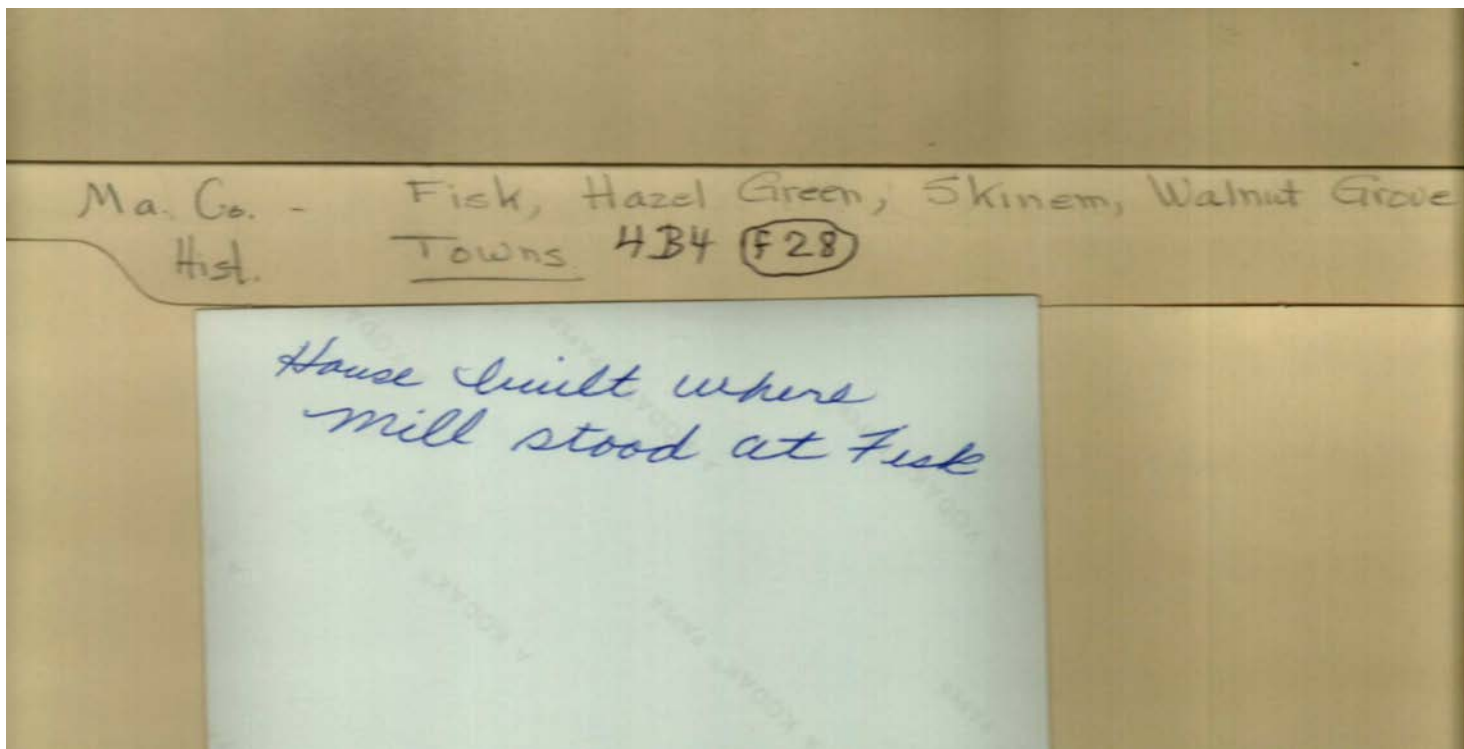 Ma. Co. - Fisk, Hazel Green, Skinem, Walnut Grove
Hist. Towns. 4B4 F28
House built where
mill stood at Fisk